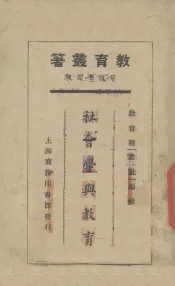 教育叢箸
教育雜誌社編輯
社會學與教育
上海商務印書館發行